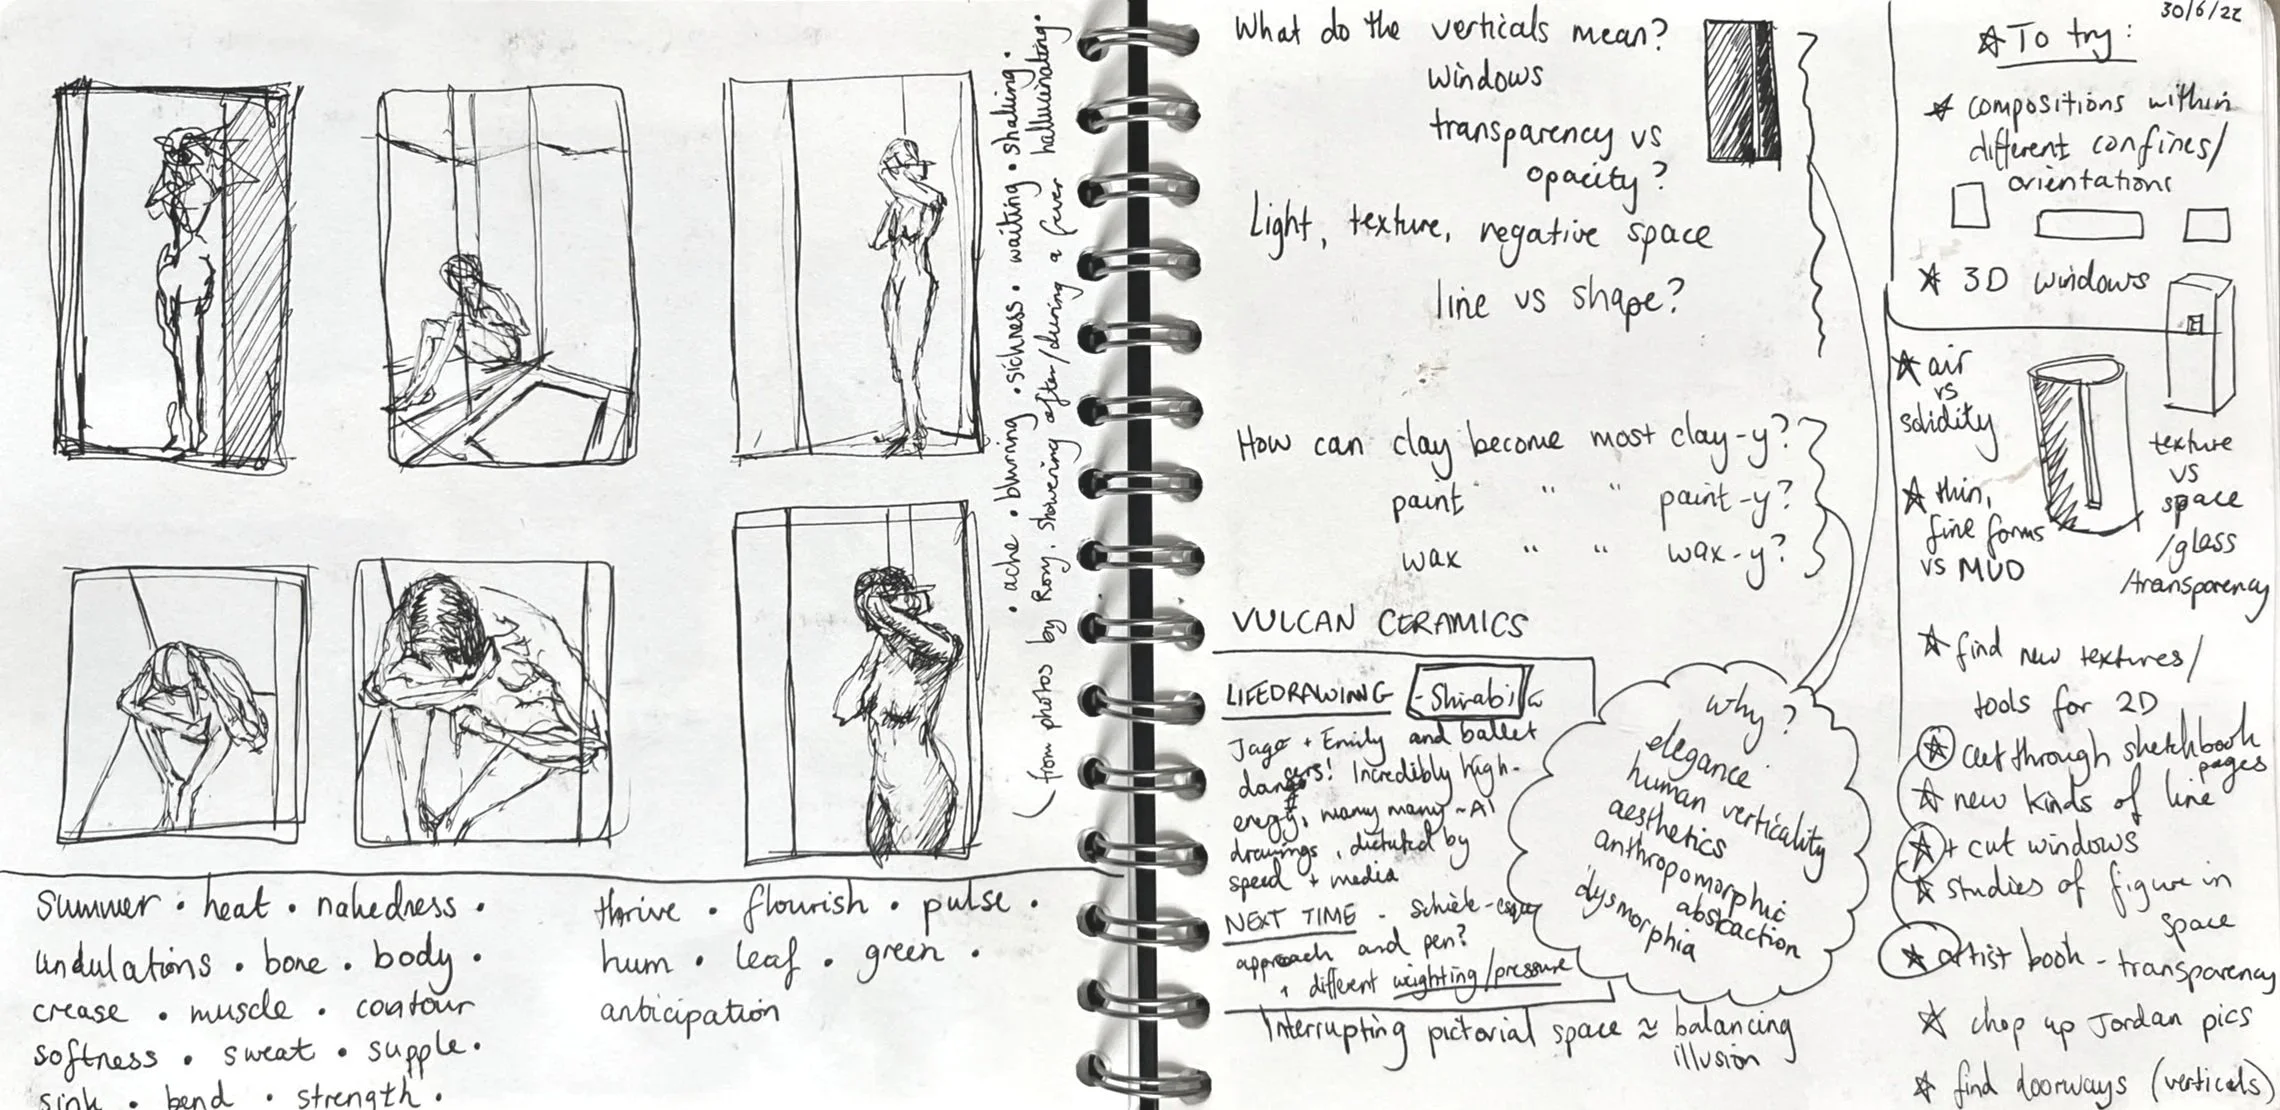 • ache • burning • sickness • waiting • shaking •
(from photos by Rory, showering after/during a fever hallucinating •
Summer • heat • nakedness •
undulations • bone • body •
crease • muscle • contour
softness • sweat • supple •
sink • bend • strength •
thrive • flourish • pulse •
hum • leaf • green •
anticipation
What do the verticals mean?
windows
transparency vs
opacity?
Light, texture, negative space
line vs shape?
How can clay become most clay-y?
paint " " paint-y?
wax " " wax-y?
VULCAN CERAMICS
LIFEDRAWING - Shirabi
Jago + Emily and ballet
dancers! Incredibly high-
energy, many many ~A1
drawings, dictated by
speed + media
NEXT TIME - Schiele-esque
approach and pen?
+ different weighting/pressure
why?
elegance
human verticality
aesthetics
anthropomorphic
abstraction
dysmorphia
Interrupting pictorial space ≈ balancing
illusion
30/6/22
To try:
compositions within
different confines/
orientations
3D windows
air
vs
solidity
thin,
fine forms
vs MUD
texture
vs
space
/glass
/transparency
find new textures/
tools for 2D
cut through sketchbook
pages
new kinds of line
+ cut windows
studies of figure in
space
artist book - transparency
chop up Jordan pics
find doorways (verticals)